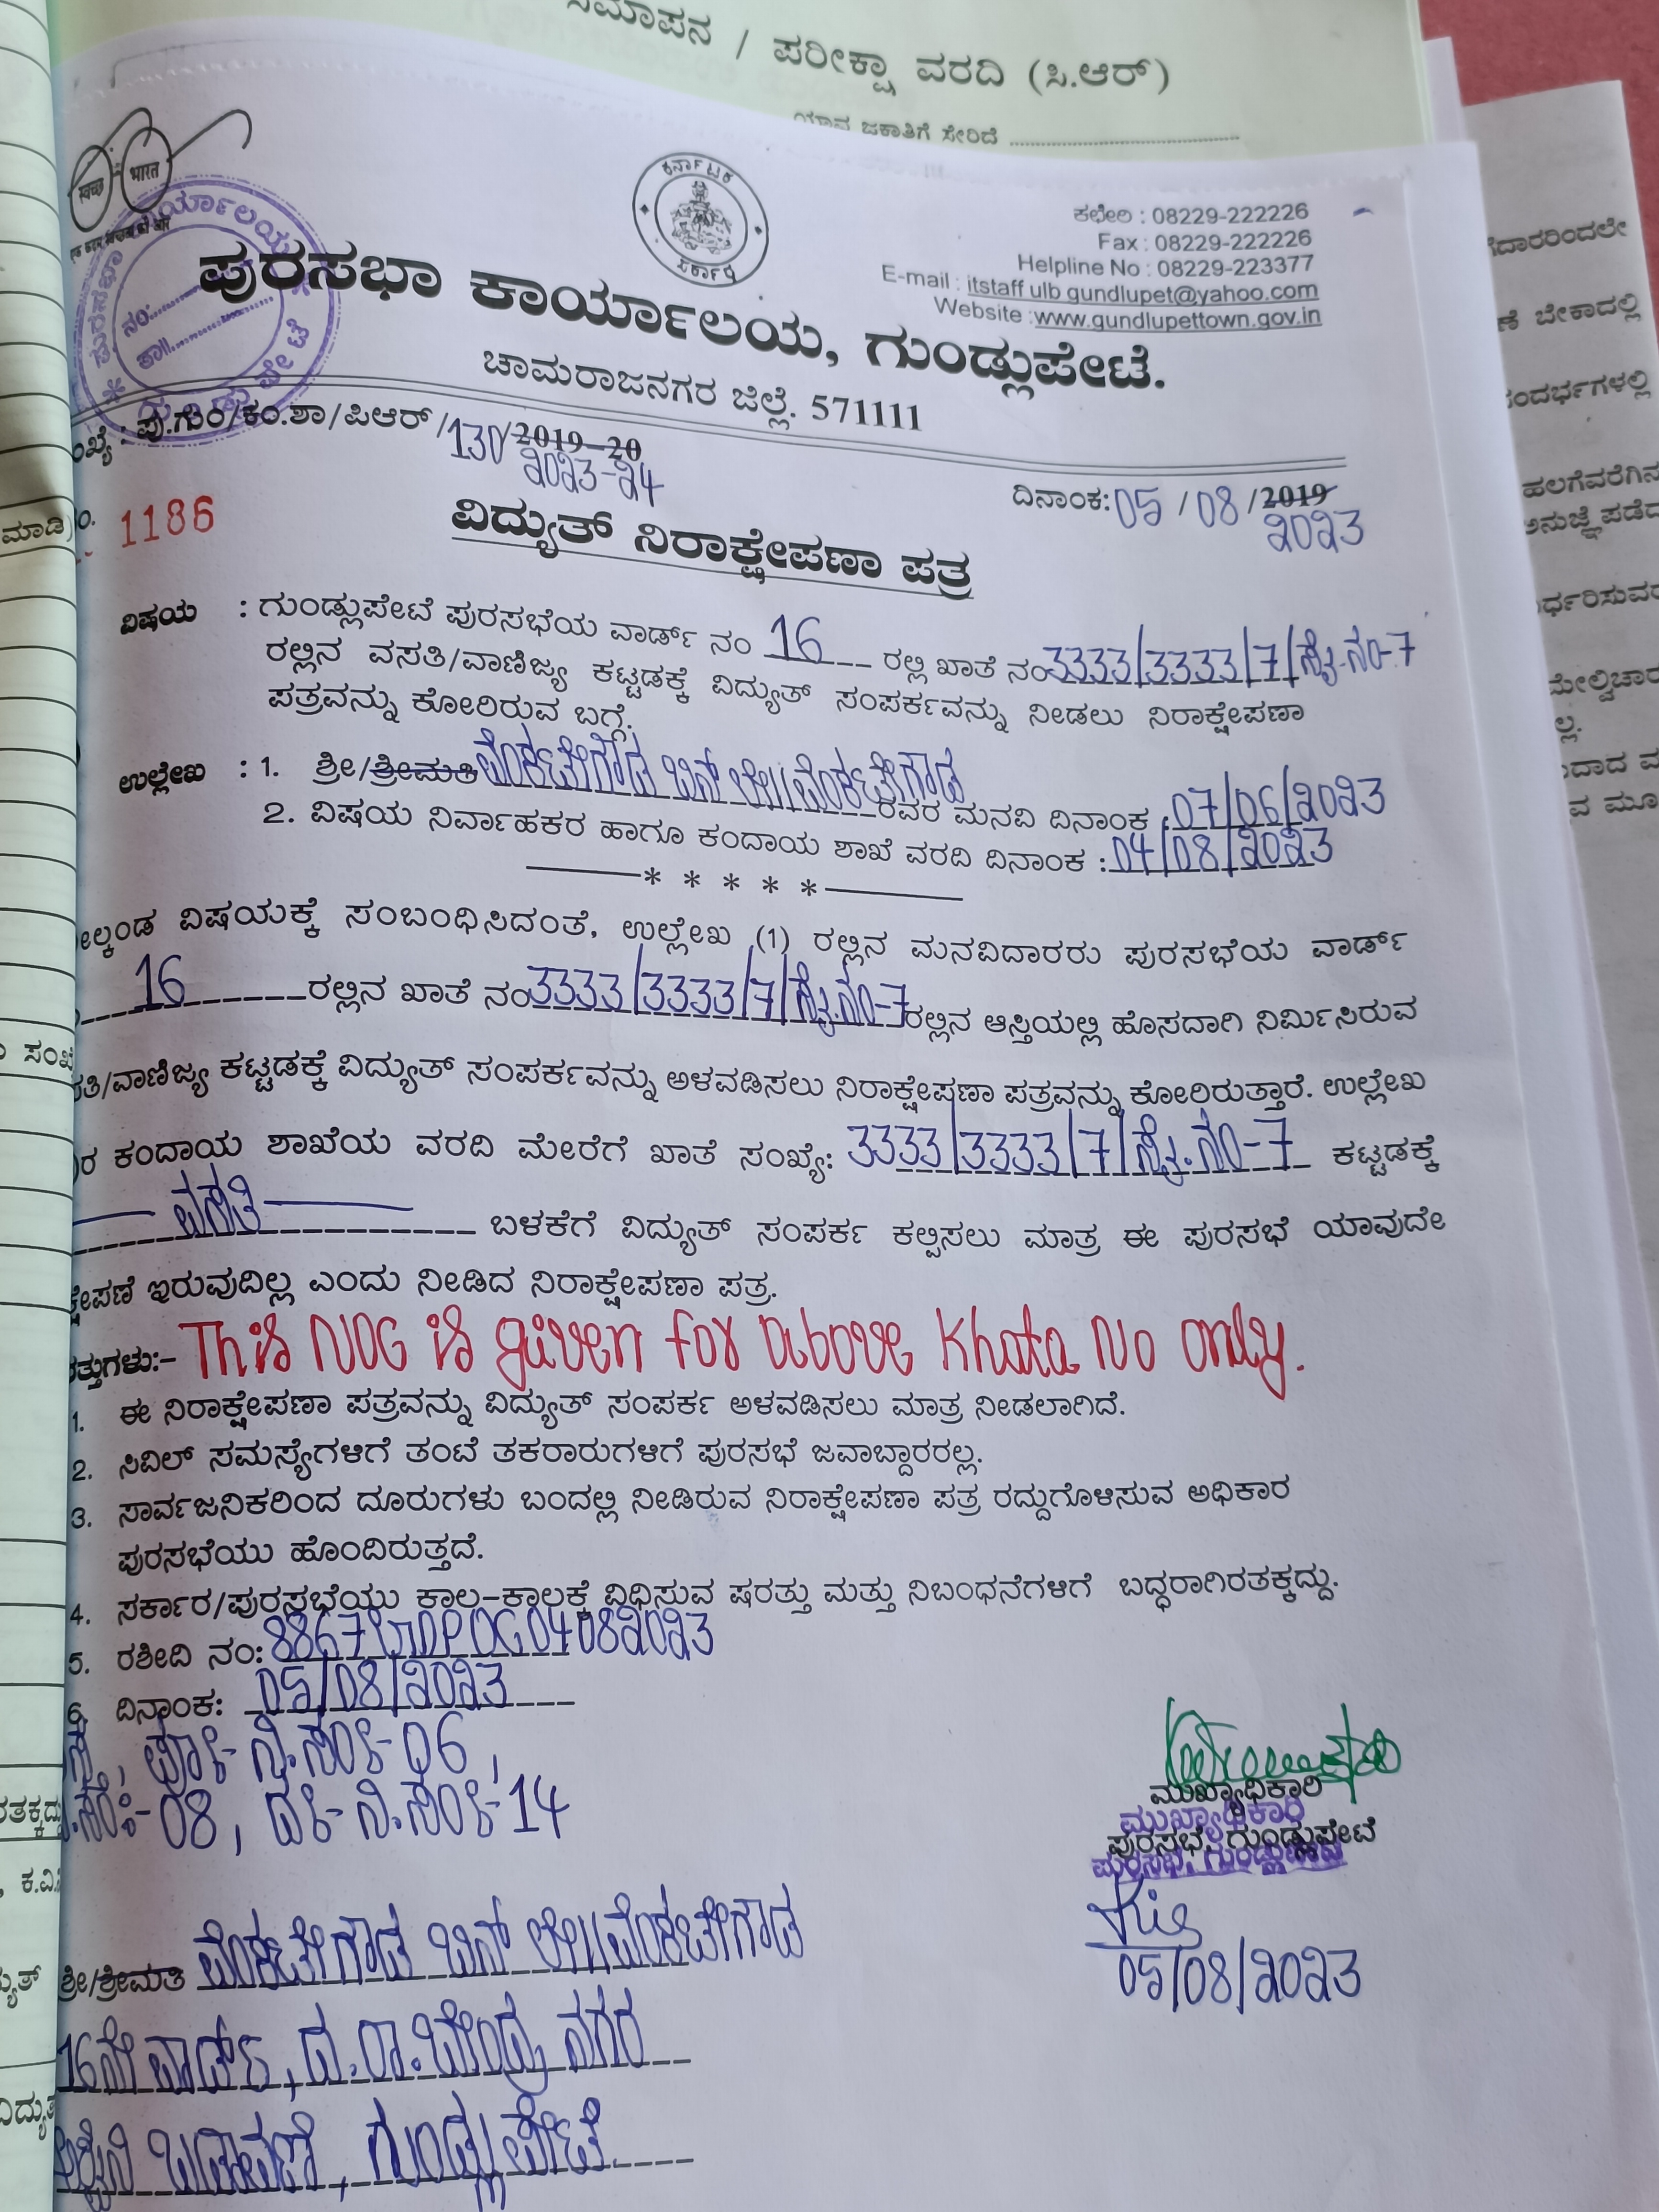 ಸಮಾಪನ / ಪರೀಕ್ಷಾ ವರದಿ (ಸಿ.ಆರ್)
ಯಾವ ಜಕಾತಿಗೆ ಸೇರಿದೆ
स्वच्छ भारत
ಕರ್ನಾಟಕ ಸರ್ಕಾರ
ಕಛೇರಿ : 08229-222226
Fax : 08229-222226
Helpline No : 08229-223377
E-mail : itstaff ulb gundlupet@yahoo.com
Website :www.gundlupettown.gov.in
ಪುರಸಭಾ ಕಾರ್ಯಾಲಯ, ಗುಂಡ್ಲುಪೇಟೆ.
ಚಾಮರಾಜನಗರ ಜಿಲ್ಲೆ. 571111
ಂಖ್ಯೆ : ಪು.ಗುಂ/ಕಂ.ಶಾ/ಪಿಆರ್ /130/2019-20
2023-24
ದಿನಾಂಕ:05/08/2019
2023
1186
ವಿದ್ಯುತ್ ನಿರಾಕ್ಷೇಪಣಾ ಪತ್ರ
ವಿಷಯ : ಗುಂಡ್ಲುಪೇಟೆ ಪುರಸಭೆಯ ವಾರ್ಡ್ ನಂ 16 ರಲ್ಲಿ ಖಾತೆ ನಂ 3333/3333/7/ಸೈ.ನಂ-7
ರಲ್ಲಿನ ವಸತಿ/ವಾಣಿಜ್ಯ ಕಟ್ಟಡಕ್ಕೆ ವಿದ್ಯುತ್ ಸಂಪರ್ಕವನ್ನು ನೀಡಲು ನಿರಾಕ್ಷೇಪಣಾ
ಪತ್ರವನ್ನು ಕೋರಿರುವ ಬಗ್ಗೆ.
ಉಲ್ಲೇಖ : 1. ಶ್ರೀ/ಶ್ರೀಮತಿ ವೆಂಕಟೇಗೌಡ ಬಿನ್ ಲೇ||ವೆಂಕಟೇಗೌಡ ರವರ ಮನವಿ ದಿನಾಂಕ :07/06/2023
2. ವಿಷಯ ನಿರ್ವಾಹಕರ ಹಾಗೂ ಕಂದಾಯ ಶಾಖೆ ವರದಿ ದಿನಾಂಕ :04/08/2023
* * * * *
ೇಲ್ಕಂಡ ವಿಷಯಕ್ಕೆ ಸಂಬಂಧಿಸಿದಂತೆ, ಉಲ್ಲೇಖ (1) ರಲ್ಲಿನ ಮನವಿದಾರರು ಪುರಸಭೆಯ ವಾರ್ಡ್
16 ರಲ್ಲಿನ ಖಾತೆ ನಂ 3333/3333/7/ಸೈ.ನಂ-7 ರಲ್ಲಿನ ಆಸ್ತಿಯಲ್ಲಿ ಹೊಸದಾಗಿ ನಿರ್ಮಿಸಿರುವ
ಸತಿ/ವಾಣಿಜ್ಯ ಕಟ್ಟಡಕ್ಕೆ ವಿದ್ಯುತ್ ಸಂಪರ್ಕವನ್ನು ಅಳವಡಿಸಲು ನಿರಾಕ್ಷೇಪಣಾ ಪತ್ರವನ್ನು ಕೋರಿರುತ್ತಾರೆ. ಉಲ್ಲೇಖ
ರ ಕಂದಾಯ ಶಾಖೆಯ ವರದಿ ಮೇರೆಗೆ ಖಾತೆ ಸಂಖ್ಯೆ: 3333/3333/7/ಸೈ.ನಂ-7 ಕಟ್ಟಡಕ್ಕೆ
ವಸತಿ ಬಳಕೆಗೆ ವಿದ್ಯುತ್ ಸಂಪರ್ಕ ಕಲ್ಪಿಸಲು ಮಾತ್ರ ಈ ಪುರಸಭೆ ಯಾವುದೇ
ಕ್ಷೇಪಣೆ ಇರುವುದಿಲ್ಲ ಎಂದು ನೀಡಿದ ನಿರಾಕ್ಷೇಪಣಾ ಪತ್ರ.
ರತ್ತುಗಳು:- This NOC is given for above Khata No only.
1. ಈ ನಿರಾಕ್ಷೇಪಣಾ ಪತ್ರವನ್ನು ವಿದ್ಯುತ್ ಸಂಪರ್ಕ ಅಳವಡಿಸಲು ಮಾತ್ರ ನೀಡಲಾಗಿದೆ.
2. ಸಿವಿಲ್ ಸಮಸ್ಯೆಗಳಿಗೆ ತಂಟೆ ತಕರಾರುಗಳಿಗೆ ಪುರಸಭೆ ಜವಾಬ್ದಾರರಲ್ಲ.
3. ಸಾರ್ವಜನಿಕರಿಂದ ದೂರುಗಳು ಬಂದಲ್ಲಿ ನೀಡಿರುವ ನಿರಾಕ್ಷೇಪಣಾ ಪತ್ರ ರದ್ದುಗೊಳಿಸುವ ಅಧಿಕಾರ
ಪುರಸಭೆಯು ಹೊಂದಿರುತ್ತದೆ.
4. ಸರ್ಕಾರ/ಪುರಸಭೆಯು ಕಾಲ-ಕಾಲಕ್ಕೆ ವಿಧಿಸುವ ಷರತ್ತು ಮತ್ತು ನಿಬಂಧನೆಗಳಿಗೆ ಬದ್ಧರಾಗಿರತಕ್ಕದ್ದು.
5. ರಶೀದಿ ನಂ:
6. ದಿನಾಂಕ: 05/08/2023
ಮುಖ್ಯಾಧಿಕಾರಿ
ಪುರಸಭೆ, ಗುಂಡ್ಲುಪೇಟೆ
05/08/2023
ಶ್ರೀ/ಶ್ರೀಮತಿ ವೆಂಕಟೇಗೌಡ ಬಿನ್ ಲೇ||ವೆಂಕಟೇಗೌಡ
16ನೇ ವಾರ್ಡ್, ದ.ರಾ.ಬೇಂದ್ರೆ ನಗರ
ಬಡಾವಣೆ, ಗುಂಡ್ಲುಪೇಟೆ